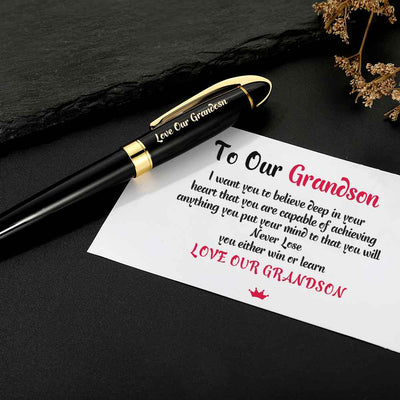 Love Our Grandosn
To Our Grandson
I want you to believe deep in your
heart that you are capable of achieving
anything you put your mind to that you will
Never Lose
you either win or learn
LOVE OUR GRANDSON